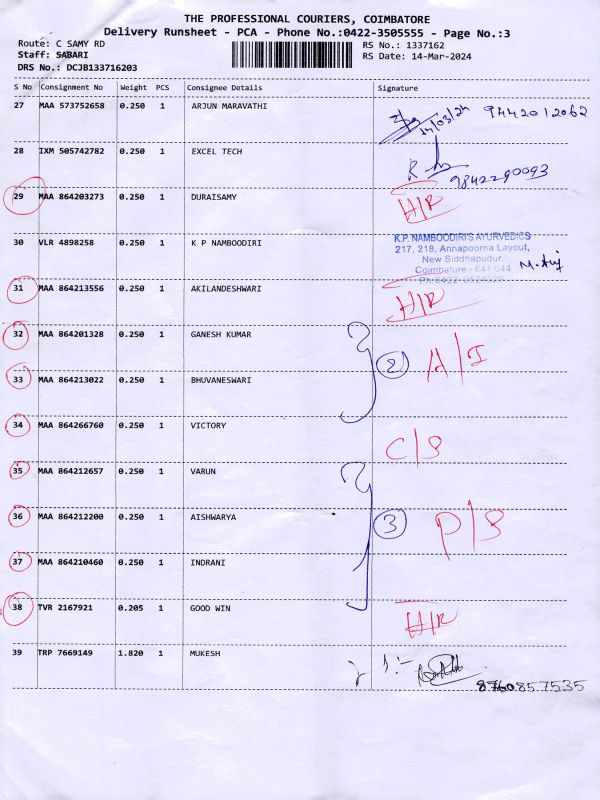 THE PROFESSIONAL COURIERS, COIMBATORE
Delivery Runsheet - PCA - Phone No.:0422-3505555 - Page No.:3
Route: C SAMY RD RS No.: 1337162
Staff: SABARI RS Date: 14-Mar-2024
DRS No.: DCJB133716203
S No Consignment No Weight PCS Consignee Details Signature
27 MAA 573752658 0.250 1 ARJUN MARAVATHI 14/03/24 9442012062
28 IXM 505742782 0.250 1 EXCEL TECH
9842290093
29 MAA 864203273 0.250 1 DURAISAMY H/R
30 VLR 4898258 0.250 1 K P NAMBOODIRI K.P. NAMBOODIRI'S AYURVEDICS
217, 218, Annapoorna Layout,
New Siddhapudur,
Coimbatore - 641 044
31 MAA 864213556 0.250 1 AKILANDESHWARI H/R
32 MAA 864201328 0.250 1 GANESH KUMAR
2 A/I
33 MAA 864213022 0.250 1 BHUVANESWARI
34 MAA 864266760 0.250 1 VICTORY C/S
35 MAA 864212657 0.250 1 VARUN
36 MAA 864212200 0.250 1 AISHWARYA 3 P/S
37 MAA 864210460 0.250 1 INDRANI
38 TVR 2167921 0.205 1 GOOD WIN H/R
39 TRP 7669149 1.820 1 MUKESH
8760857535